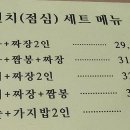 런치(점심) 세트 메뉴
+짜장2인 ······ 29,
+짬뽕+짜장 ···· 31
+짜장2인 ······ 3
+짜장+짬뽕 ···· 3
+가지밥2인